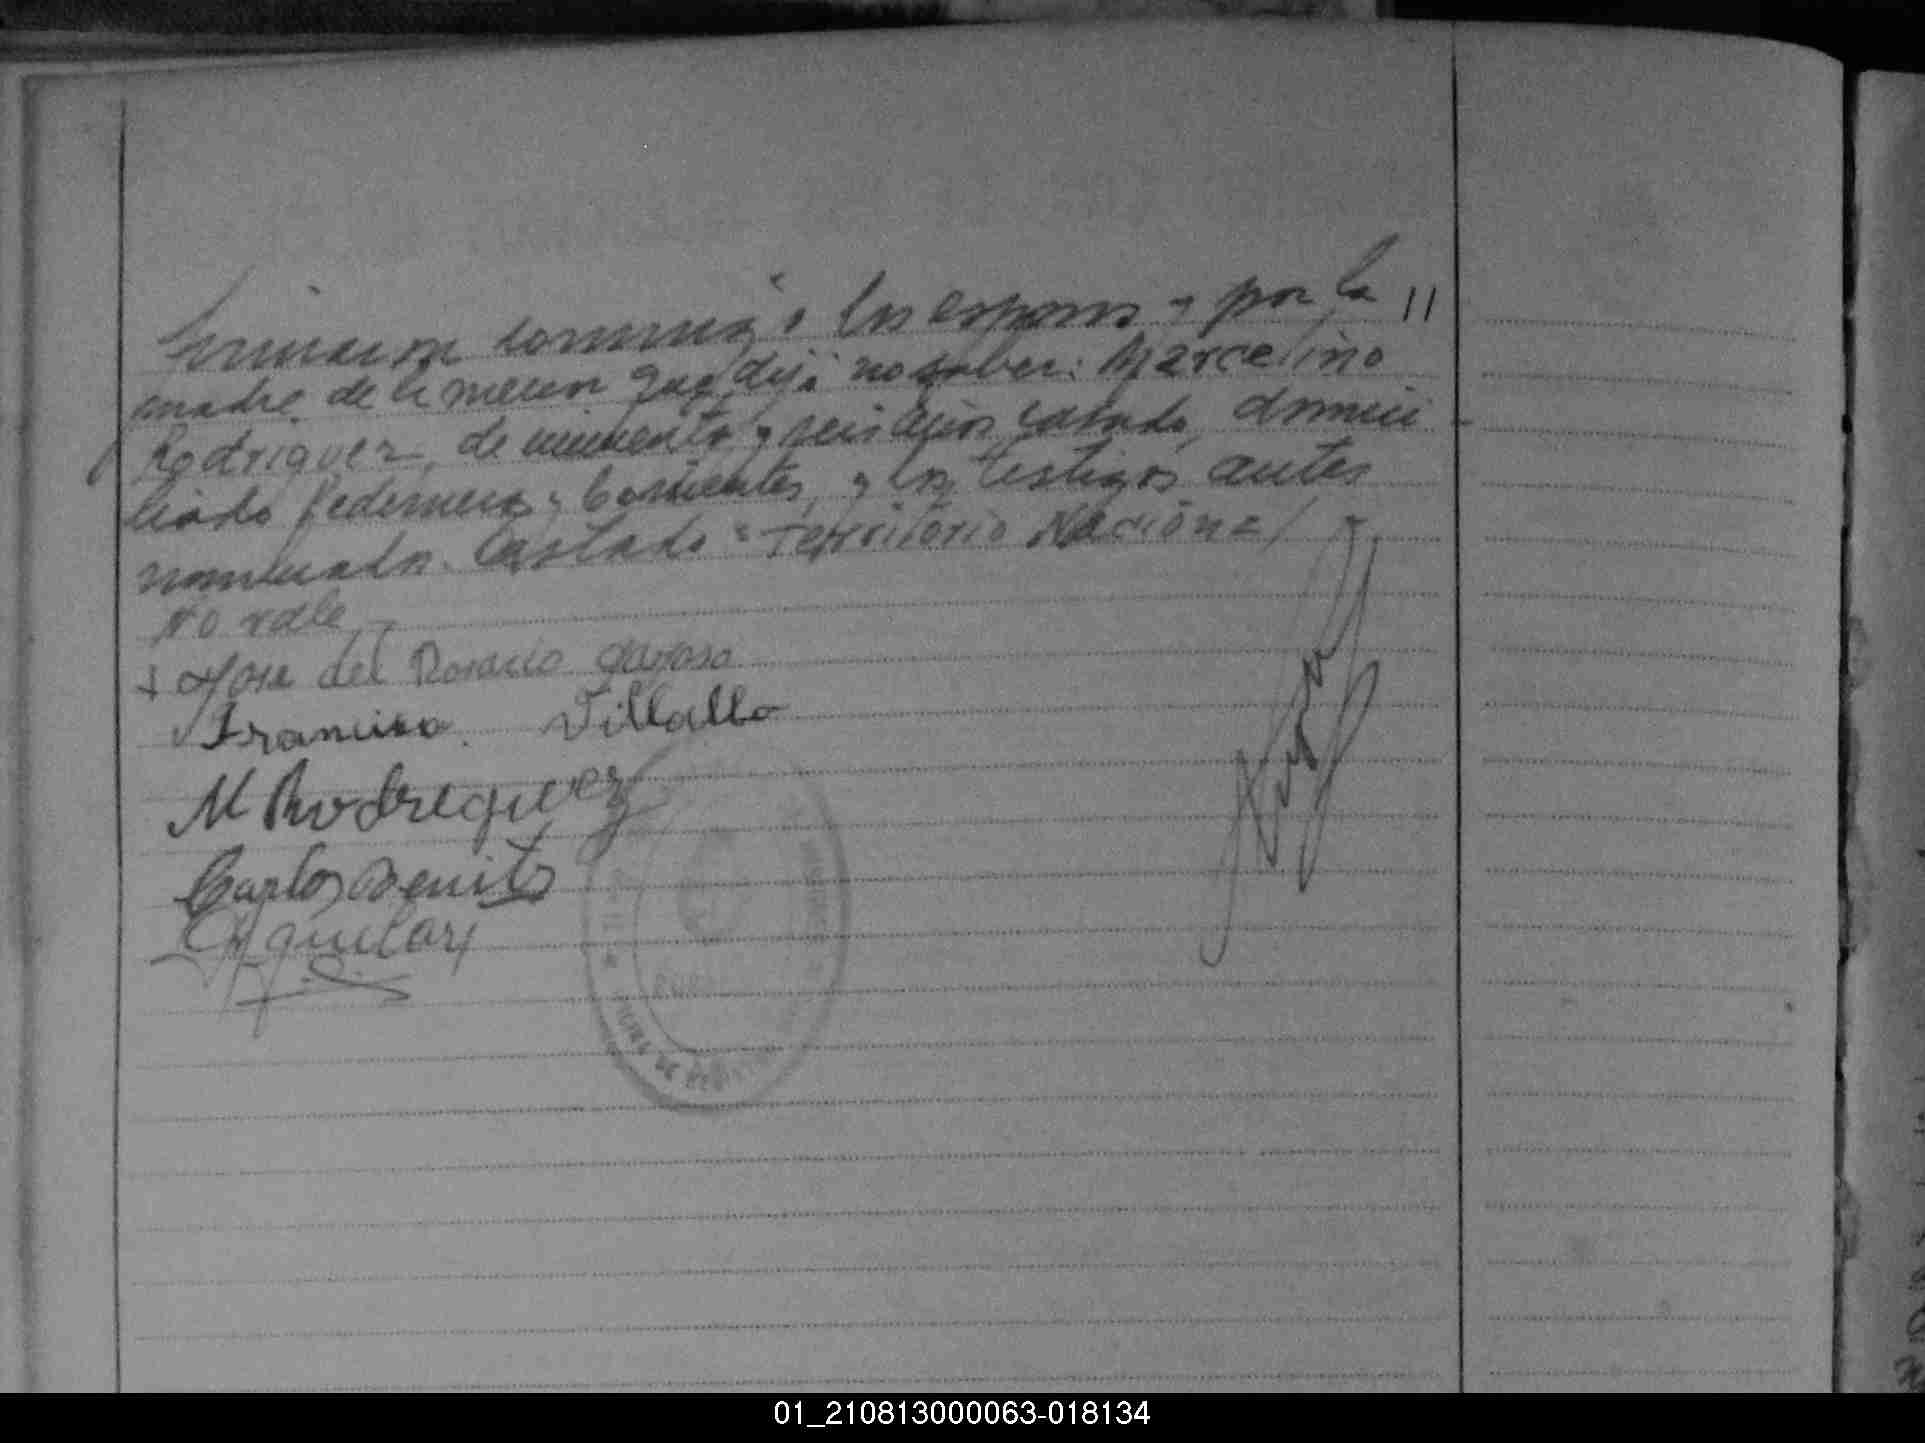 firmaron conmigo los esposos y por la //
madre de la menor que dijo no saber: Marcelino
Rodriguez, de cincuenta y seis años casado, domici-
liado Pedernera y Corrientes, y los testigos antes
nombrados. Testado = Territorio Nacional
No vale
+ Jose del Rosario Gayoso
Francisca Villalba
M Rodreguez
Carlos Benitz
Aguilar
01_210813000063-018134